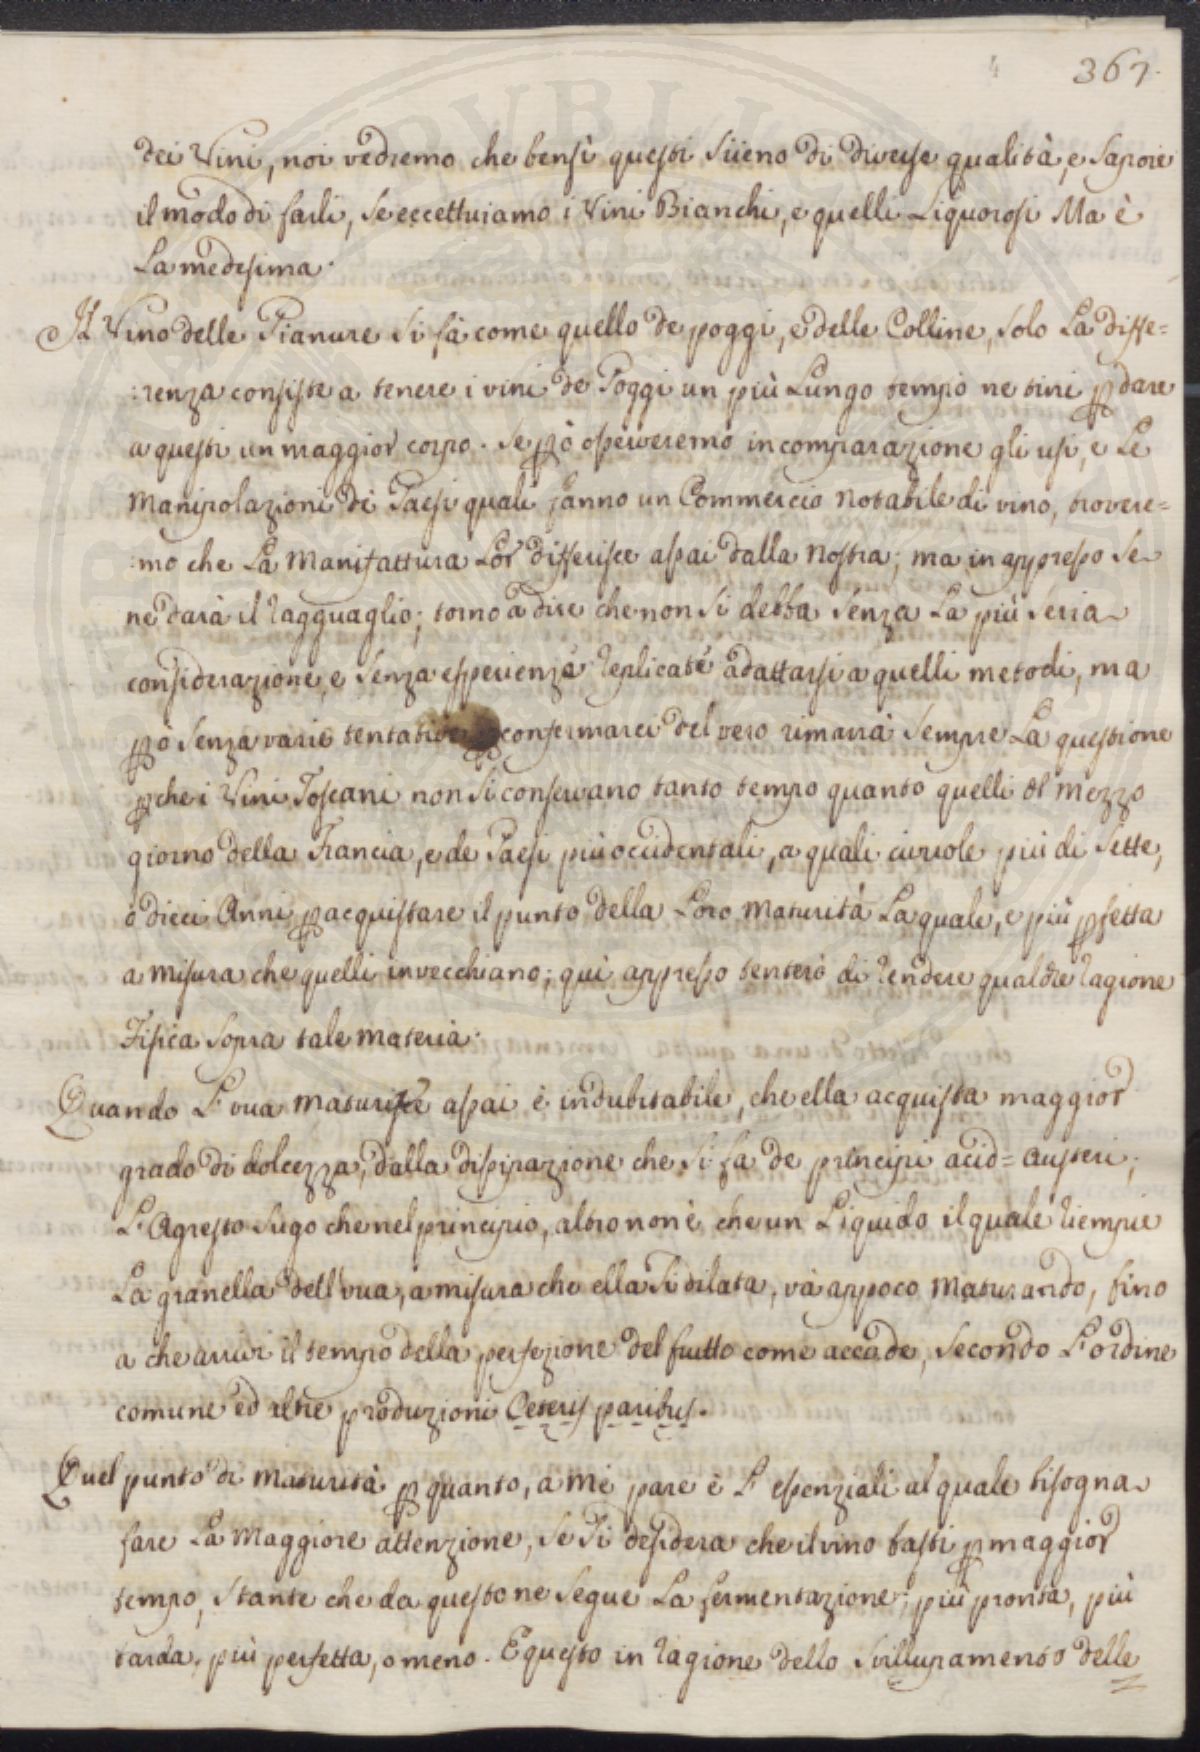 4 367.
dei Vini, noi vedremo che bensì questi siieno di diverse qualità, e sapore
il modo di farli, se eccettuiamo i Vini Bianchi, e quelli Liquorosi Ma è
La medesima.
Il Vino delle Pianure si fà come quello de poggi, e delle Colline, solo La diffe=
:renza consiste a tenere i vini de Poggi un più Lungo tempo ne tini p dare
a questi un maggior corpo. Se pò osserveremo in comparazione gli usi, e Le
Manipolazioni di Paesi quali fanno un Commercio notabile di vino, trovere=
:mo che La Manifattura Lor differisce assai dalla Nostra; ma in appresso se
ne darà il ragguaglio; torno a dire che non si debba senza La più seria
considerazione, e senza esperienze replicate adattarsi a quelli metodi, ma
pò senza varie tentative p confermarci del vero rimarrà sempre La questione
pche i Vini Toscani non si conservano tanto tempo quanto quelli del mezzo
giorno della Francia, e de Paesi più occidentali, a quali ci vuole più di sette,
o dieci Anni p acquistare il punto della Loro maturità La quale, e più pfetta
a misura che quelli invecchiano; quì appresso tenterò di rendere qualche ragione
Fisica sopra tale materia.
Quando L'uva maturisce assai è indubitabile, che ella acquista maggior
grado di dolcezza, dalla dissipazione che si fa de principi acid=austeri;
L'Agresto sugo che nel principio, altro non è, che un Liquido il quale riempie
La granella dell'uva, a misura che ella si dilata, và appoco maturando, fino
a che arrivi il tempo della perfezione del frutto come accade, secondo L'ordine
comune ed altre produzioni Ceteris paribus.
Quel punto di maturità p quanto, a me pare è L'essenziali al quale bisogna
fare La maggiore attenzione, se si desidera che il vino basti p maggior
tempo, stante che da questo ne segue La fermentazione; più pronta, più
tarda, più perfetta, o meno. E questo in ragione dello svillupamento delle